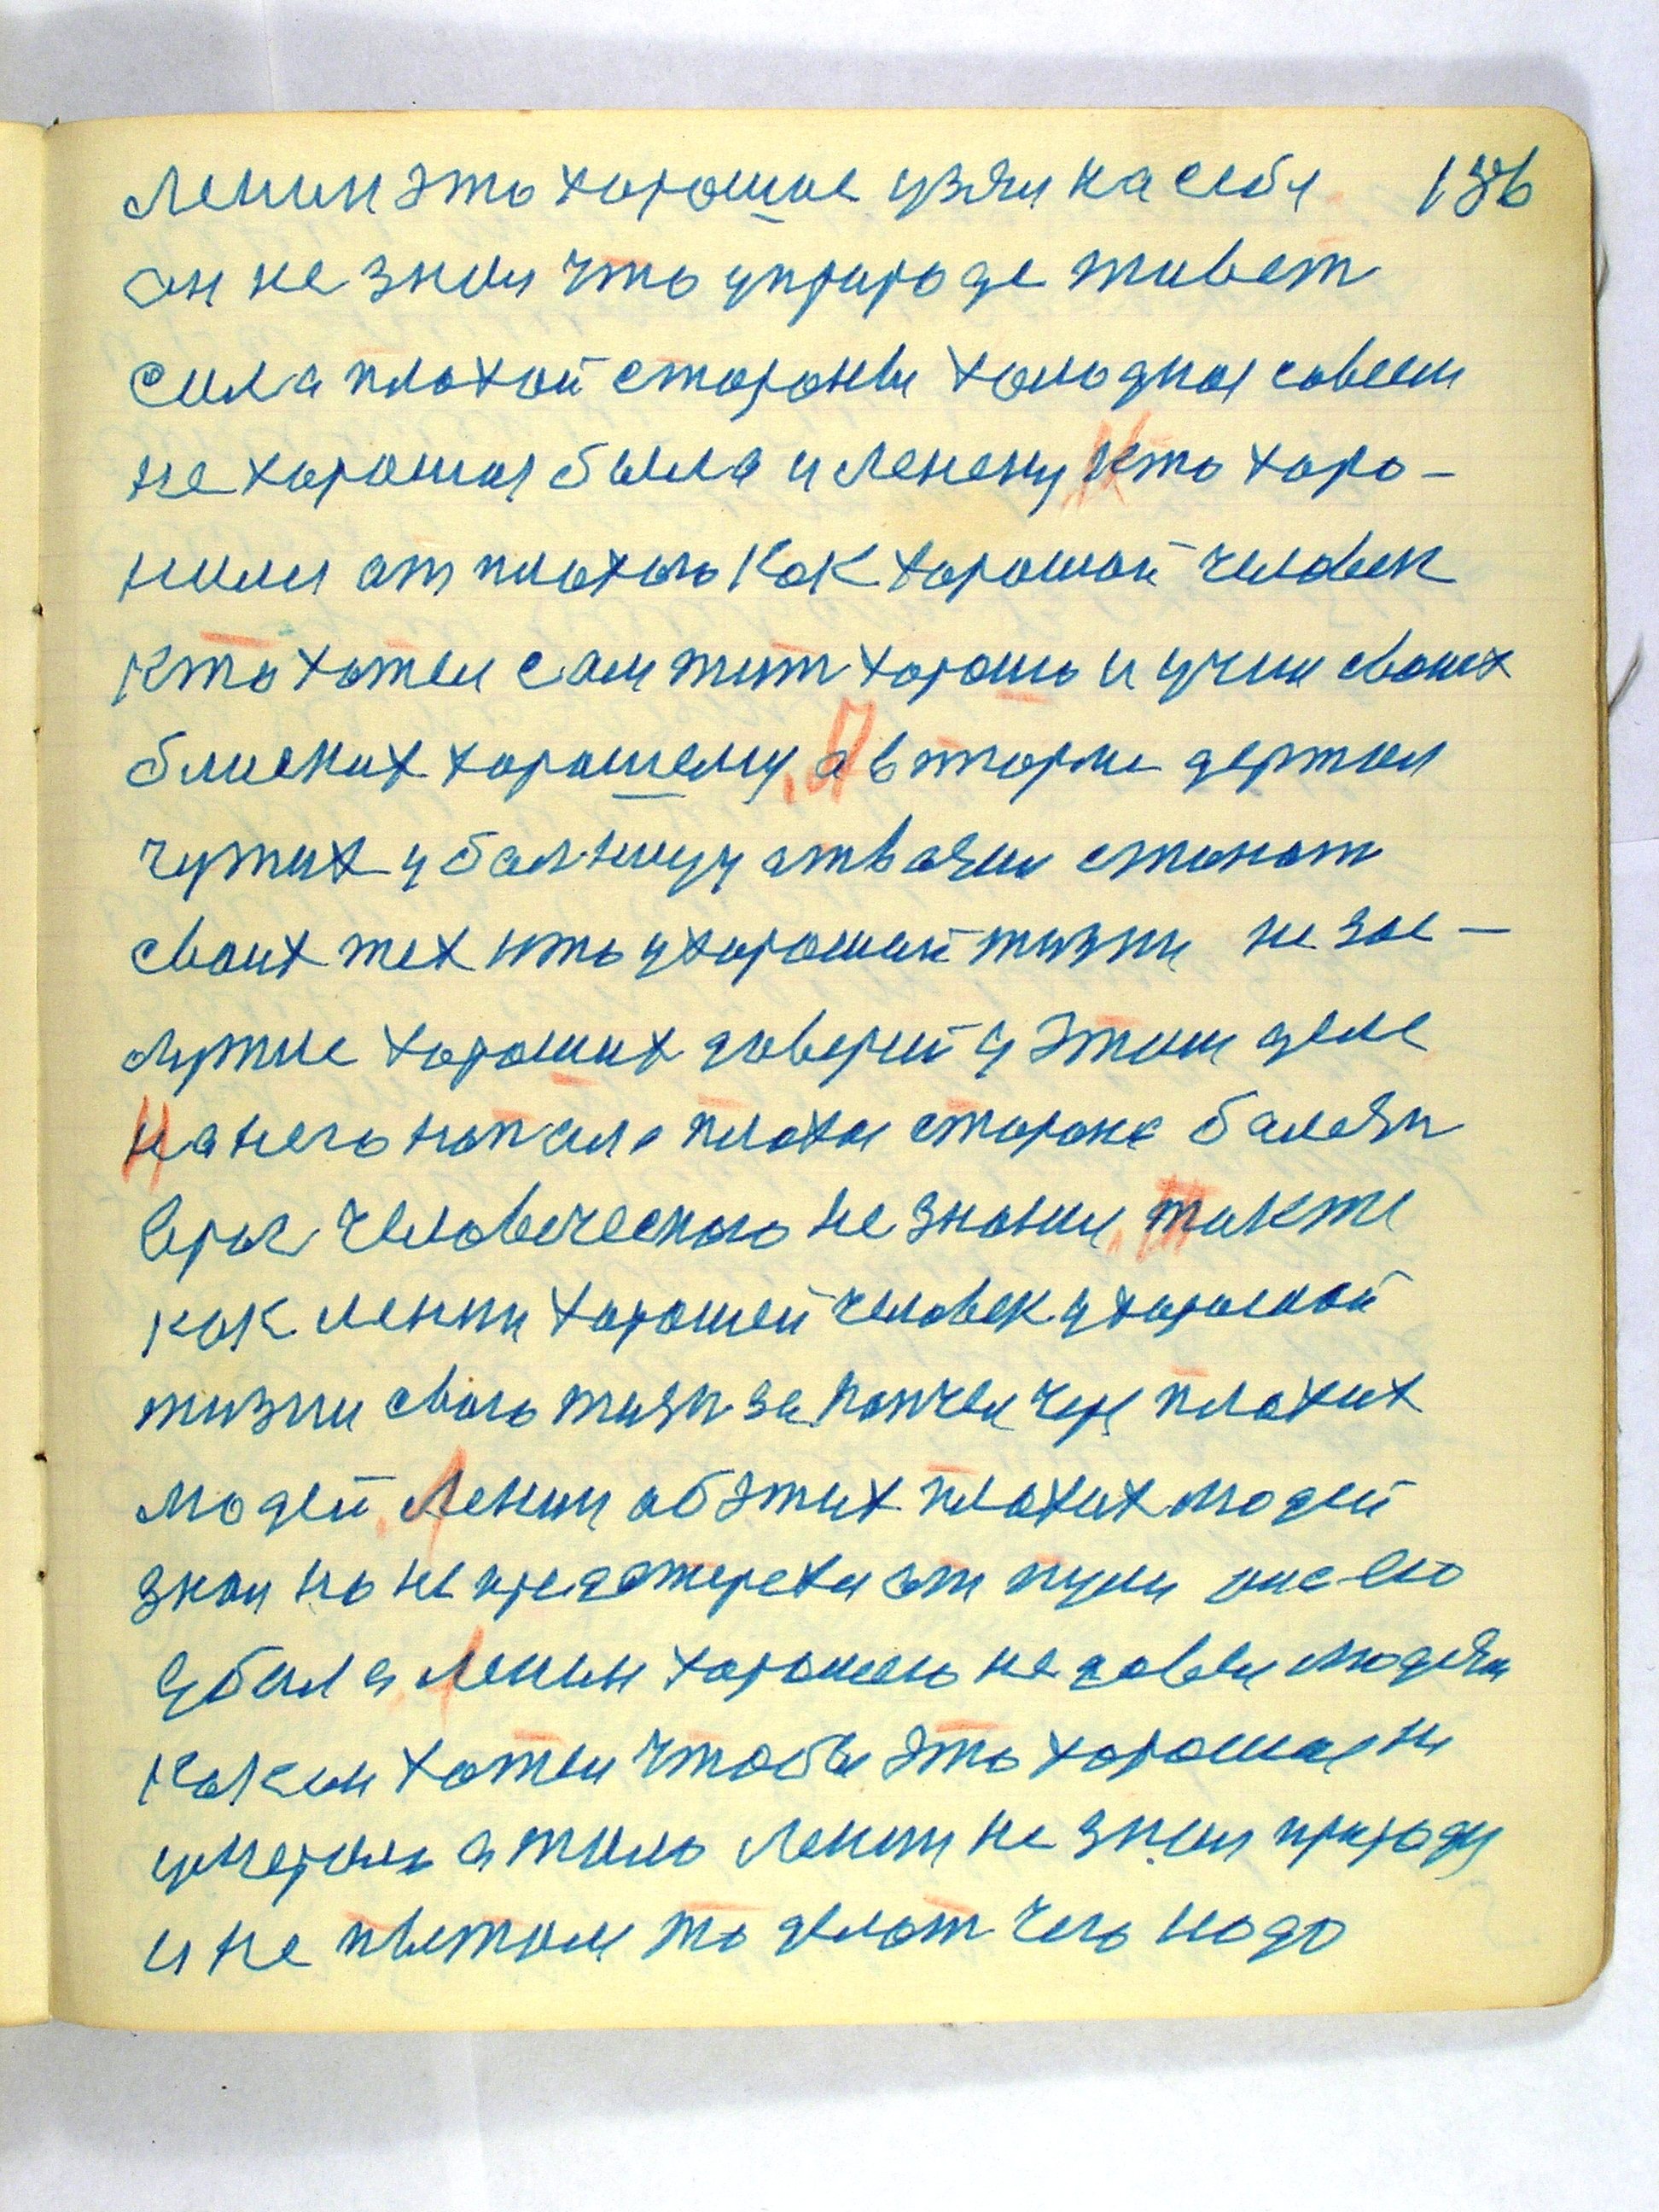 Ленин это хорошое узял на себя 136
он не знал что у природе живет
сила плохой стороны холодная совсем
не хорошая была и Ленену Кто харо-
нился от плохого Как хорошой человек
Кто хотел сам жит хорошо и учил своих
блиских хорошему, а в торме держал
чужих у балницу атвазил стонот
своих тех кто у хорошай жизни не зас-
лужие хороших доверий у этим деле
На него напала плохая сторона балезн
враг человеческого не знания, так же
как ленин хорошей человек у хорошой
жизни свою жизн за кончел чере плохих
людей, Ленин об этих плохих людей
знал но не предстерехся от пули она его
убила, Ленин хорошего не довел людям
как он хотел чтобы это хорошае не
умерало а жило Ленин не знал природу
и не пытался то делат чего надо